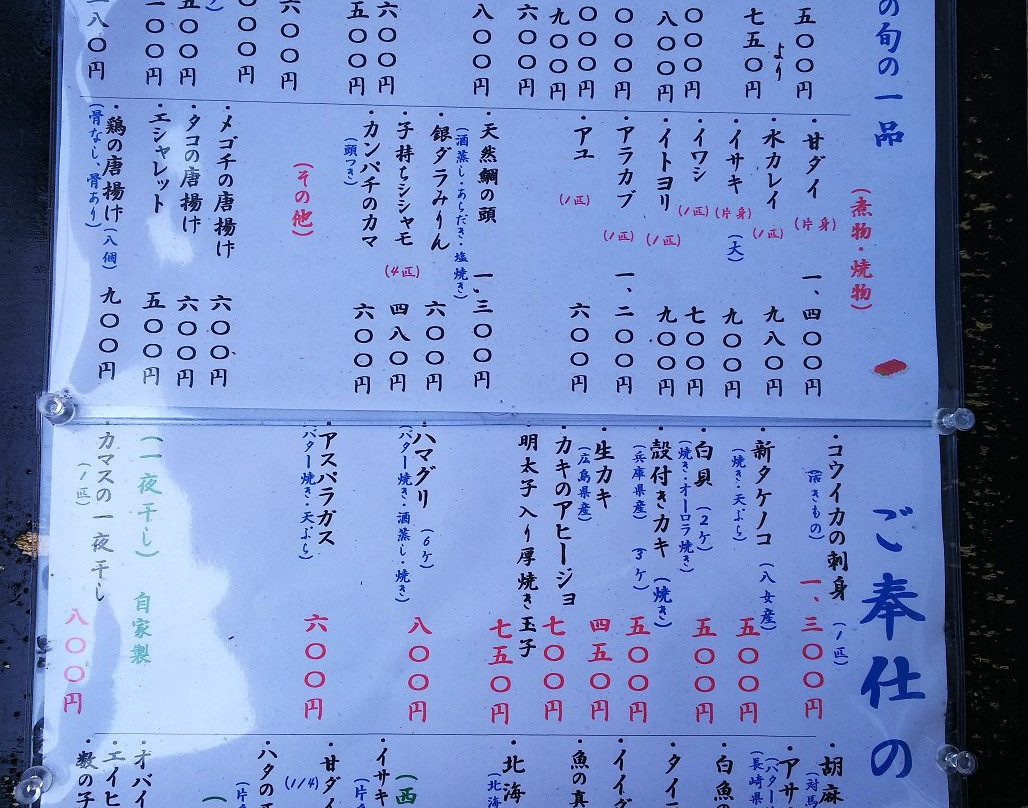 の旬の一品
五〇〇円
より
七五〇円
〇〇円
八〇〇円
〇〇円
〇〇〇円
九〇〇円
六〇〇円
八〇〇円
六〇〇円
五〇〇円
六〇〇円
〇〇円
五〇〇円
一〇〇円
八〇円
(煮物・焼物)
・甘ダイ (片身) 一、四〇〇円
・水カレイ (1匹) 九八〇円
・イサキ (片身) (大) 九〇〇円
・イワシ (1匹) 七〇〇円
・イトヨリ (1匹) 九〇〇円
・アラカブ (1匹) 一、二〇〇円
・アユ (1匹) 六〇〇円
・天然鯛の頭 一、三〇〇円
(酒蒸し・あらだき・塩焼き)
・銀ダラみりん 六〇〇円
・子持ちシシャモ (4匹) 四八〇円
・カンパチのカマ 六〇〇円
(頭つき)
(その他)
・メゴチの唐揚げ 六〇〇円
・タコの唐揚げ 六〇〇円
・エシャレット 五〇〇円
・鶏の唐揚げ (八個) 九〇〇円
(骨なし、骨あり)
ご奉仕の
・コウイカの刺身 (1匹) 一、三〇〇円
(活きもの)
・新タケノコ (八女産) 五〇〇円
(焼き・天ぷら)
・白貝 (2ケ) 五〇〇円
(焼き・オーロラ焼き)
・殻付きカキ (焼き) 五〇〇円
(兵庫県産) (3ケ)
・生カキ 四五〇円
(広島県産)
・カキのアヒージョ 七〇〇円
・明太子入り厚焼き玉子 七五〇円
・ハマグリ (6ケ) 八〇〇円
(バター焼き・酒蒸し・焼き)
・アスパラガス 六〇〇円
(バター焼き・天ぷら)
(一夜干し) 自家製
・カマスの一夜干し 八〇〇円
(1匹)
・胡麻
(対馬
・アサ
(バター
(長崎県
・白魚
・タイ
・イイダ
・魚の真
・北海
(北海
(西
・イサキ
(片
・甘ダイ
(1/4)
・ハタの
(片
・オバイ
・エイヒ
・数の子